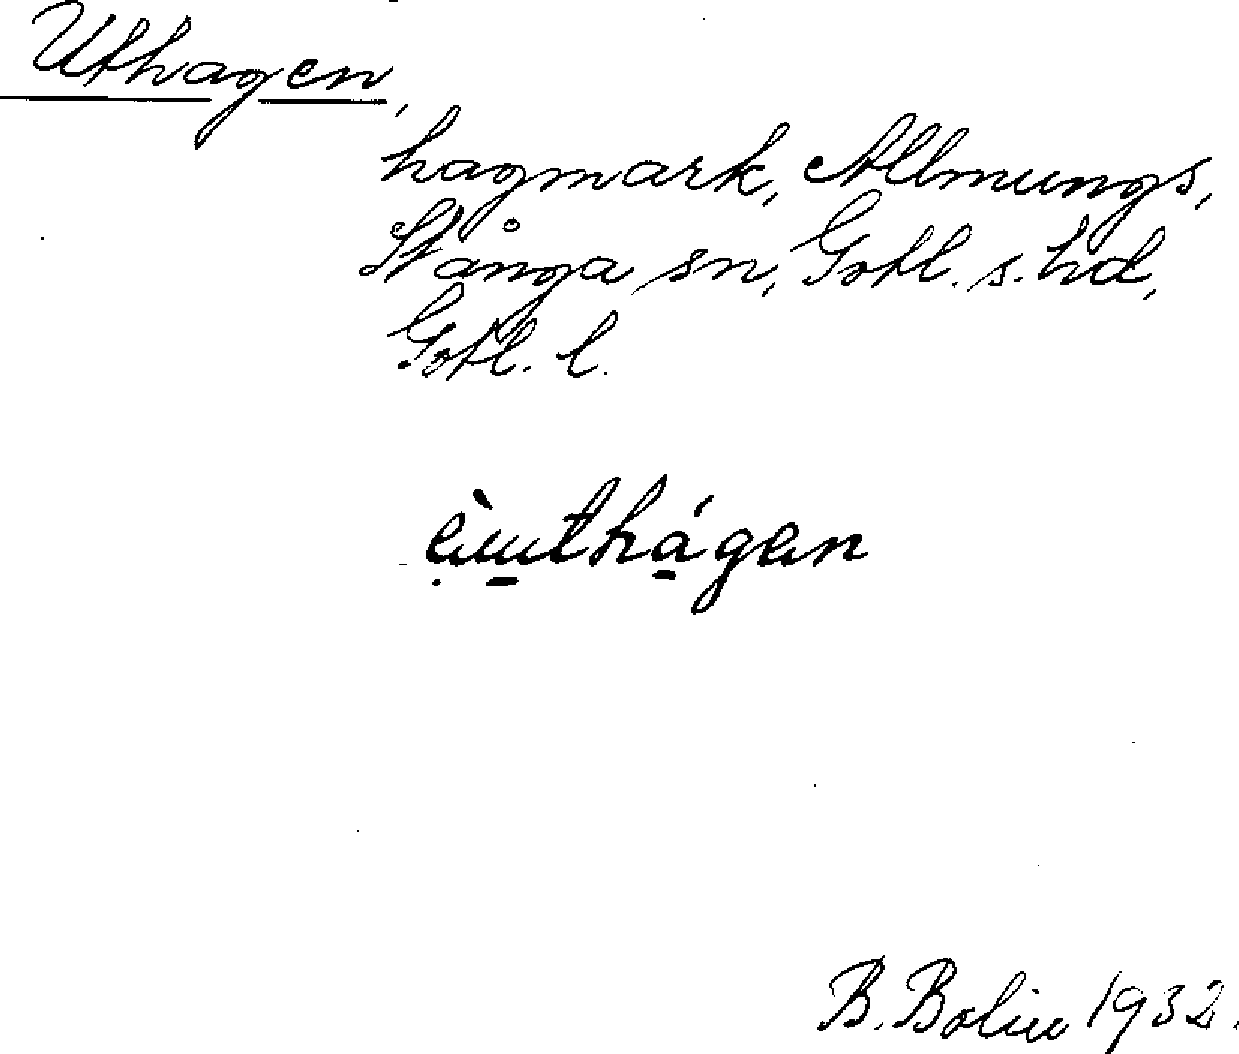 Uthagen,
hagmark, Allmungs,
Stånga sn, Gotl. s. hd,
Gotl. l.
èu̱thá̱gen
B. Bolin 1932.